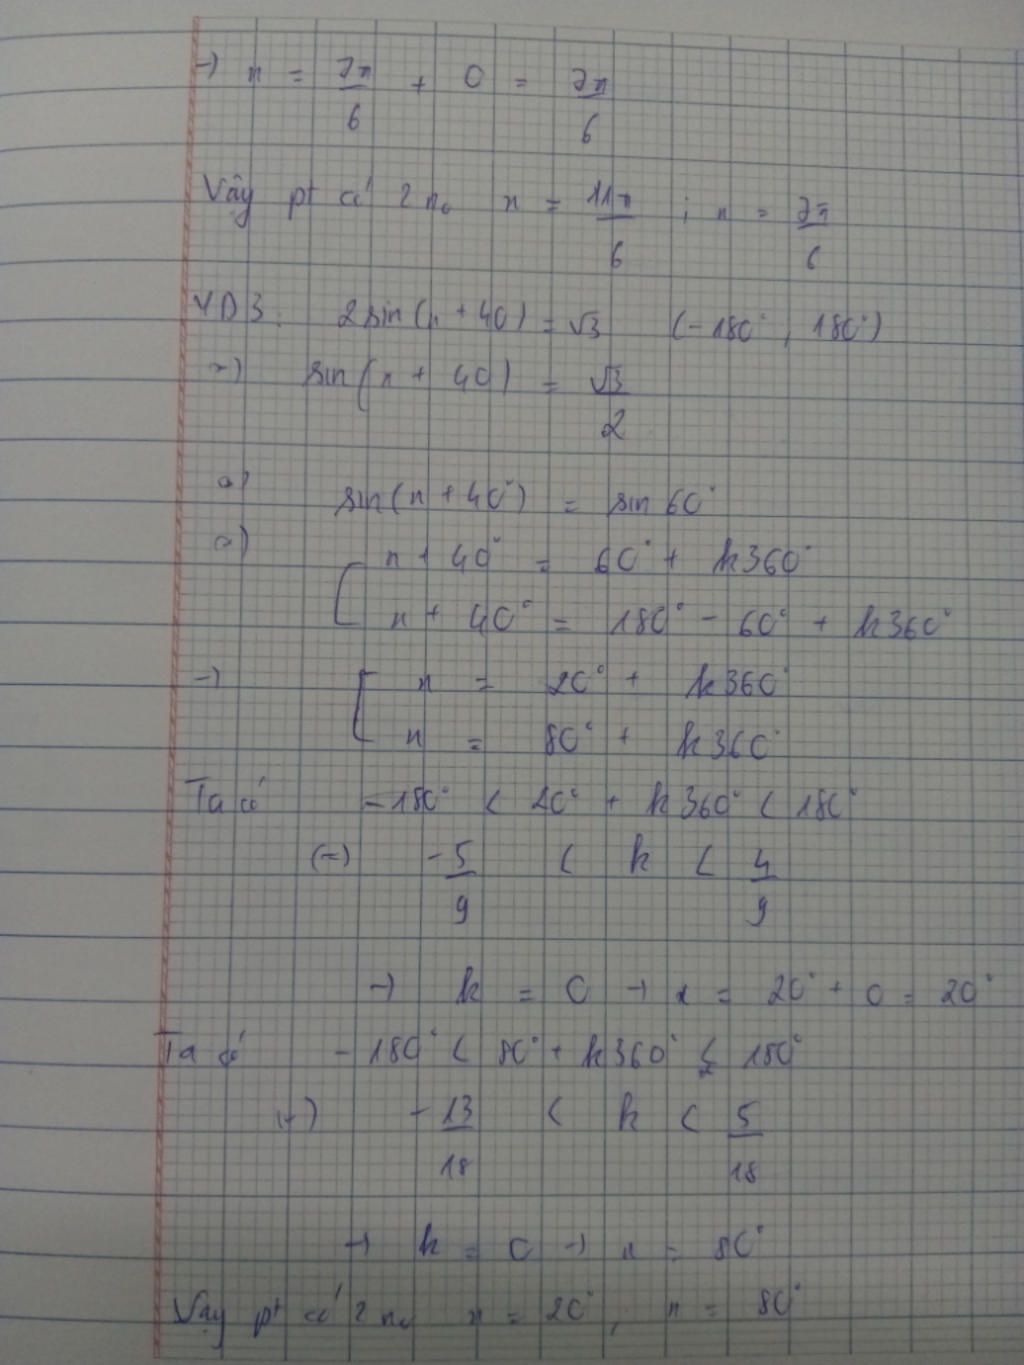 → x = 7π/6 + 0 = 7π/6
Vậy pt có 2 n₀ x = 11π/6 ; x = 7π/6
VD3: 2sin(x + 40) = √3 (-180°, 180°)
=) sin(x + 40) = √3/2
=) sin(x + 40°) = sin 60°
=) [ x + 40° = 60° + k360°
x + 40° = 180° - 60° + k360°
→ [ x = 20° + k360°
x = 80° + k360°
Ta có -180° < 20° + k360° < 180°
(=) -5/9 < k < 4/9
→ k = 0 → x = 20° + 0 = 20°
Ta có -180° < 80° + k360° < 180°
(=) -13/18 < k < 5/18
→ k = 0 → x = 80°
Vậy pt có 2 n₀ x = 20°; x = 80°